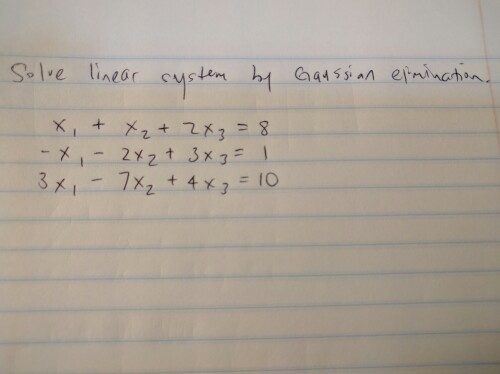 Solve linear system by Gaussian elimination.
x₁ + x₂ + 2x₃ = 8
-x₁ - 2x₂ + 3x₃ = 1
3x₁ - 7x₂ + 4x₃ = 10